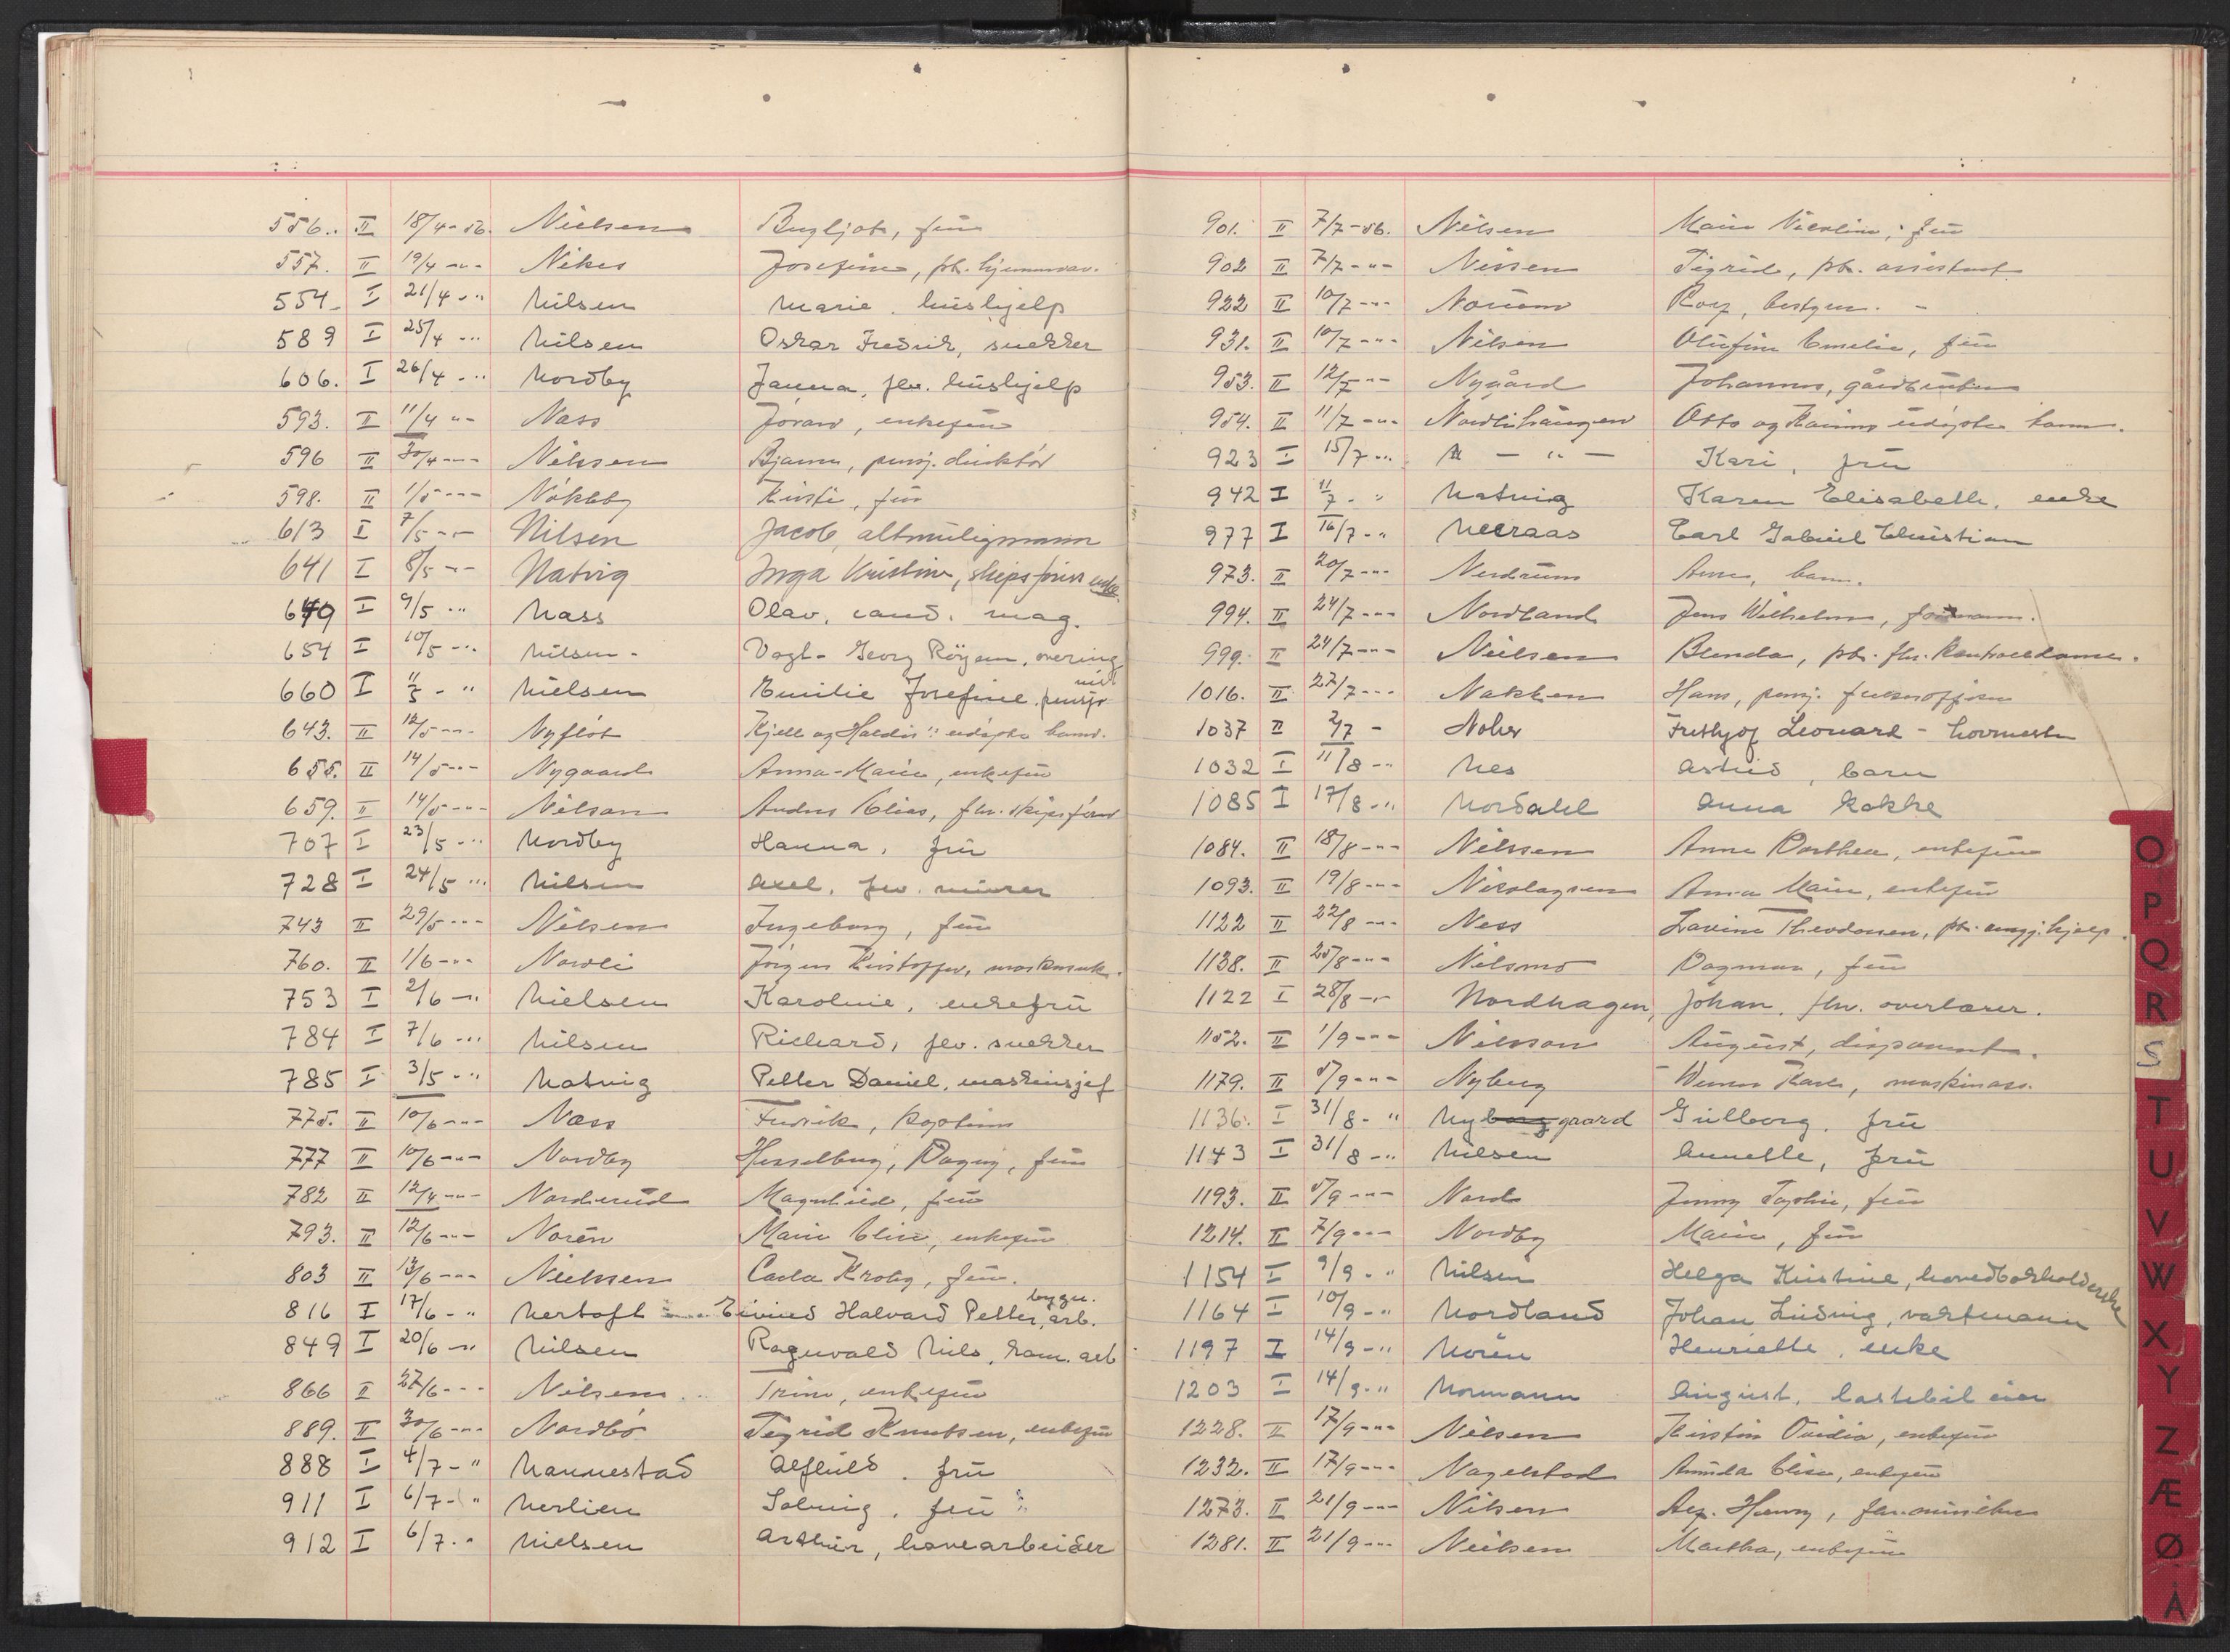 556. II 18/4-56. Nielsen Bergljot, frue
557. II 19/4 -"- Nikes Josefine, ph. hjemmev.
554 I 21/4 -" Nilsen Marie. hushjelp
589 I 25/4 -" Nilsen Oskar Fredrik, snekker
606. I 26/4 -" Nordby Janna, fhv. hushjelp
593. II 11/4 -"- Næss Joran, enkefrue
596 II 30/4 -"- Nilssen Bjarne, pensj. direktör
598. II 1/5 -"- Nökleby Kirsti, frue
613 I 7/5 -"- Nilsen Jacob, altmuligmann
641 I 8/5 -"- Natvig Inga Kristine, skipsförer enke
649 I 9/5 -" Næss Olav, cand. mag.
654 I 10/5 -" Nilsen - Vogt - Georg Röyem, overing.
660 I 11/5 -" Nielsen Emilie Josefine. pensjo nist
643. II 12/5 -"- Nyflöt Kjell og Haldis's udöpte barn.
655. II 14/5 -"- Nygaard Anna-Marie, enkefrue
659. II 14/5 -"- Nilsson Anders Elias, fhv. skipsförer
707 I 23/5 -" Nordby Hanna, frü
728 I 24/5 -" Nilsen Axel, fhv. murer
743 II 29/5 -"- Nilsen Ingeborg, frue
760. II 1/6 -"- Nordli Jörgen Kristoffer, maskinsnek.
753 I 2/6 -" Nielsen Karoline, enkefrü
784 I 7/6 -" Nilsen Richard, fhv. snekker
785 I 3/5 -" Natvig Petter Daniel, maskinsjef
775. II 10/6 -"- Næss Fredrik, kaptein
777 II 10/6 -"- Nordby Hesselberg, Dagny, frue
782 II 12/4 -"- Norderud Magnhild, frue
793. II 12/6 -"- Norén Marie Elise, enkefrue
803 II 13/6 -"- Nielssen Carla Krohg, frue.
816 I 17/6 -" Nertoft Eivind Halvard Petter, bygn. arb.
849 I 20/6 -" Nilsen Ragnvald Nils, kom. arb
866 II 27/6 -"- Nilsen Trine, enkefrue
889. II 30/6 -"- Nordbö Sigrid Knutsen, enkefrue
888 I 4/7 -" Nannestad Alfhild. frü
911 I 6/7 -" Nerlien Solveig, frü
912 I 6/7 -" Nielsen Arthur, havearbeider
901. II 7/7-56. Nilsen Marie Nicoline, frue
902 II 7/7 -"- Nissen Sigrid, ph. assistent
922 II 10/7 -"- Norum Roy, bestyrer.
931. II 10/7 -"- Nilsen Olufine Emelie, frue
953. II 12/7 -"- Nygård Johannes, gårdbruker
954. II 11/7 -"- Nordlihaugen Otto og Karins udöpte barn.
923 I 15/7 -" N - " - Kari, frü
942 I 11/7 -" Natvig Karen Elisabeth, enke
977 I 16/7 -" Neeraas Carl Gabriel Christian
973. II 20/7 -"- Nerdrum Anne, barn.
994. II 24/7 -"- Nordland Jens Wilhelm, formann.
999. II 24/7 -"- Nielsen Blenda, ph. fhv. kontordame.
1016. II 27/7 -"- Nakken Hans, pensj. fuksoffiser
1037 II 2/7 - Noher Frithjof Leonard - hovmester
1032 I 11/8 -" Nes Astrid, barn
1085 I 17/8 -" Nordahl Anna kokke
1084. II 18/8 -"- Nilssen Anne Dorthea, enkefrue
1093. II 19/8 -"- Nikolaysen Anna Marie, enkefrue
1122 II 22/8 -"- Ness Lavine Theodorsen, ph. rengj. hjelp.
1138. II 25/8 -"- Nilsmo Dagmar, frue
1122 I 28/8 -" Nordhagen, Johan, fhv. overlærer.
1152. II 1/9 -"- Nilsson August, disponent.
1179. II 5/9 -"- Nyberg Werner Karl, maskinass.
1136. I 31/8 -" Nyborg gaard Gulborg, frü
1143 I 31/8 -" Nilsen Annette, frü
1193. II 5/9 -"- Nord Jenny Sophie, frue
1214. II 7/9 -"- Nordby Marie, frue
1154 I 9/9 -" Nilsen Helga Kristine, hovedbokholderske
1164 I 10/9 -" Nordland Johan Ludvig, vaktmann
1197 I 14/9 -" Norén Henriette, enke
1203 I 14/9 -" Normann August, lastebileier
1228. II 17/9 -"- Nilsen Kirstin Ovidia, enkefrue
1232. II 17/9 -"- Nagelstad Amunda Elise, enkefrue
1273. II 21/9 -"- Nilsen Alf. Henry, fhv. musiker
1281. II 21/9 -"- Nielsen Martha, enkefrue
O
P
Q
R
S
T
U
V
W
X
Y
Z
Æ
Ø
Å